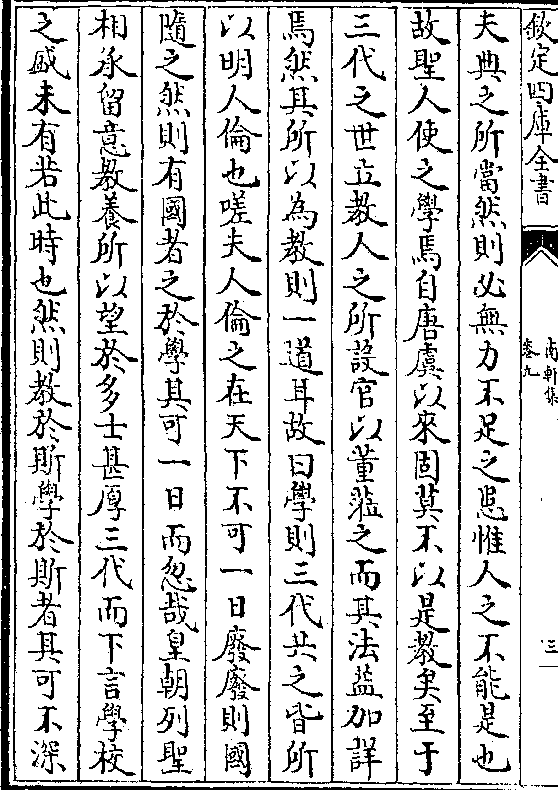 欽定四庫全書
南軒集
卷九
三
夫典之所當然則必無力不足之患惟人之不能是也
故聖人使之學焉自唐虞以來固莫不以是教矣至于
三代之世立教人之所設官以董蒞之而其法益加詳
焉然其所以為教則一道耳故曰學則三代共之皆所
以明人倫也嗟夫人倫之在天下不可一日廢廢則國
隨之然則有國者之於學其可一日而忽哉皇朝列聖
相承留意教養所以望於多士甚厚三代而下言學校
之盛未有若此時也然則教於斯學於斯者其可不深